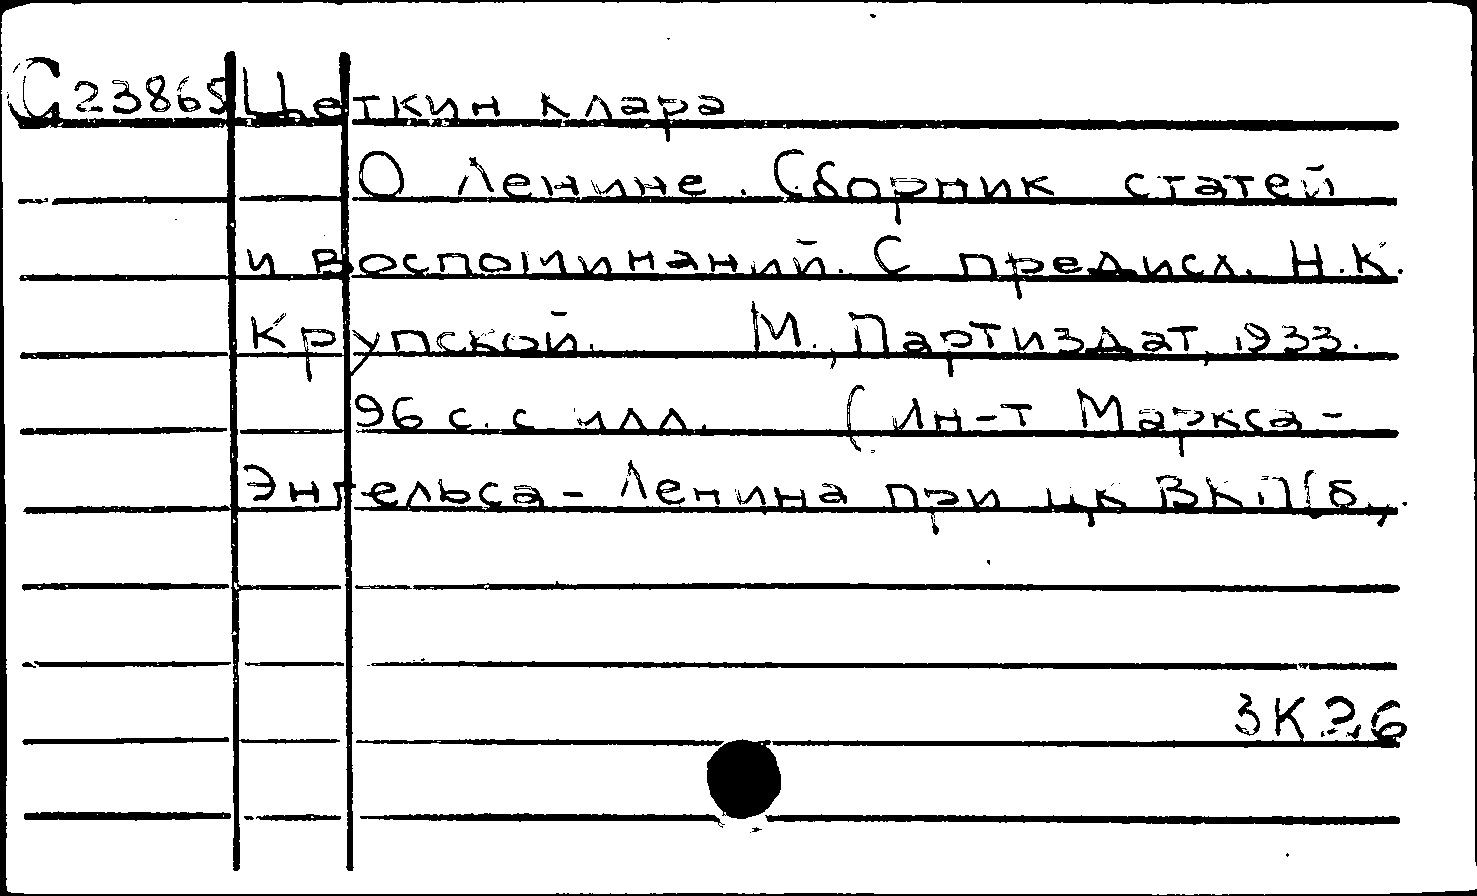 С 23865 Цеткин Клара
О Ленине. Сборник статей
и воспоминаний. С предисл. Н.К.
Крупской. М., Партиздат, 1933.
96 с. с илл. (Ин-т Маркса-
Энгельса-Ленина при ЦК ВКП(б).
3К26